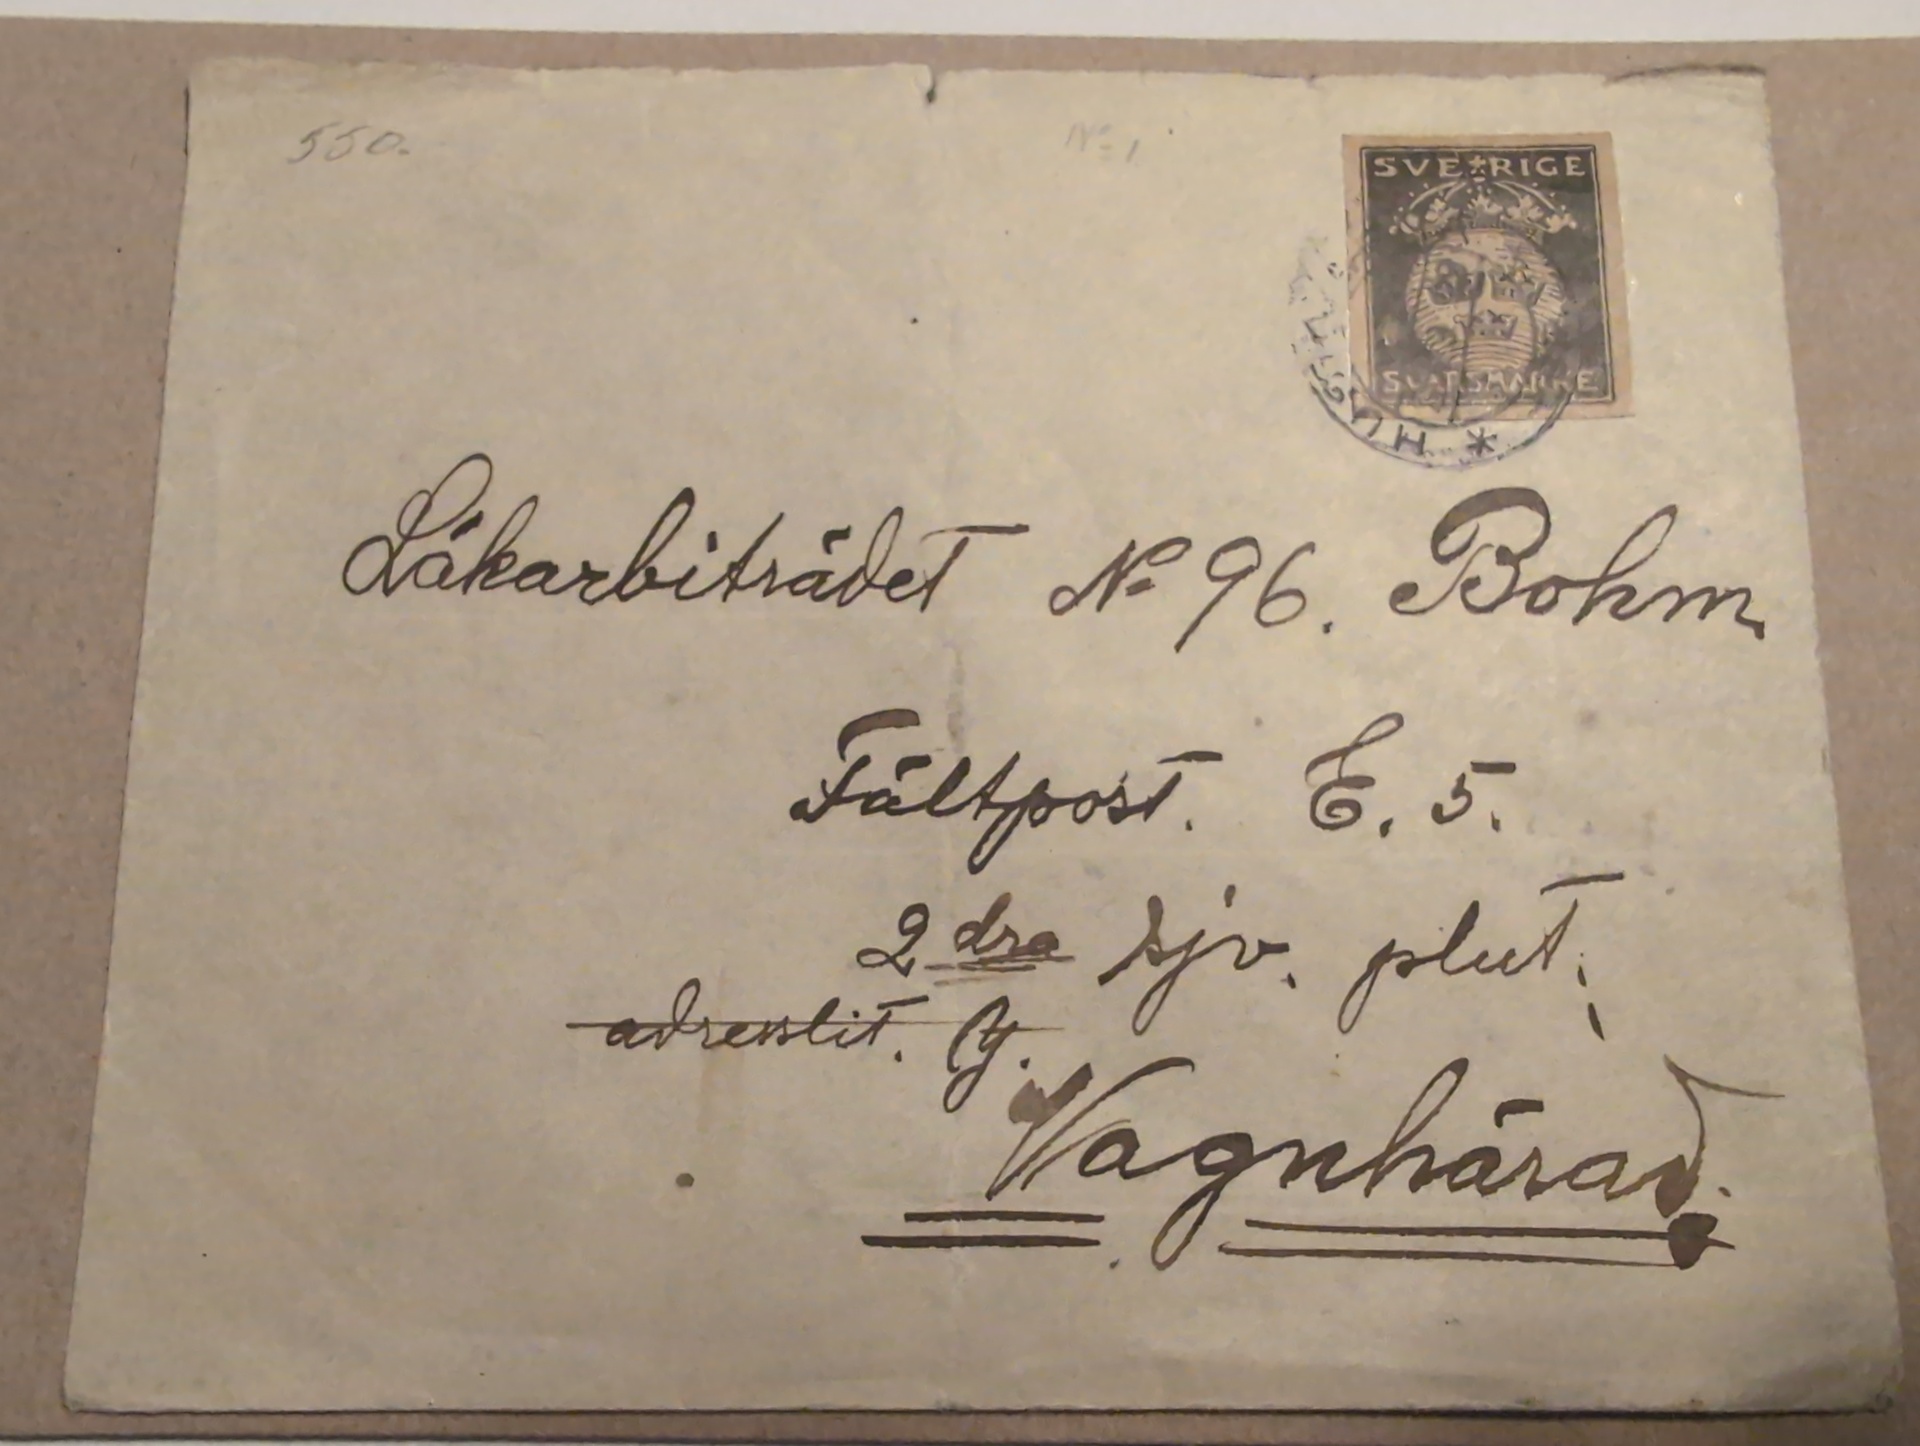 550.
No 1
SVERIGE
SVARSMÄRKE
* HUG
Läkarbiträdet No 96. Bohm.
Fältpost. E. 5.
2dra sjv. plut.
adresslit. Y.
Vagnhärad.